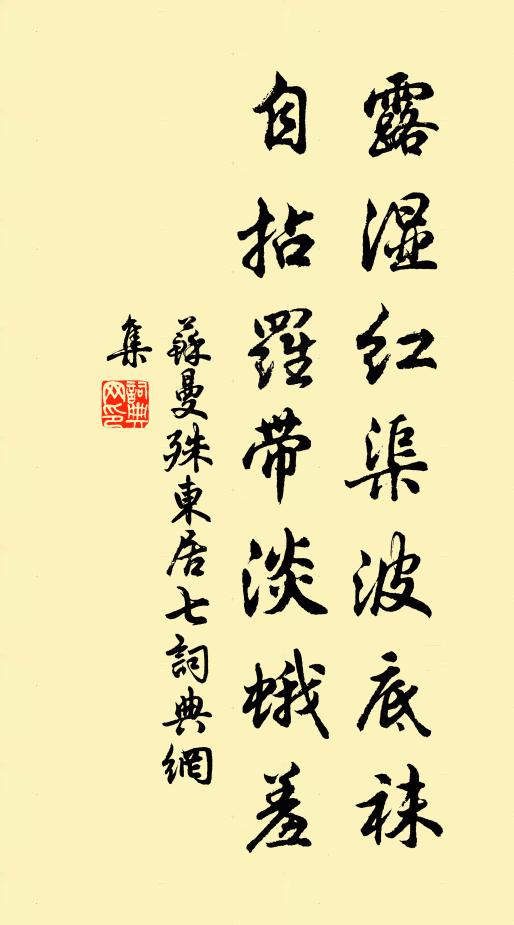 露湿红渠波底袜
自拈羅带淡蛾羞
蘇曼殊東居七詞典網
集
詞典
网印